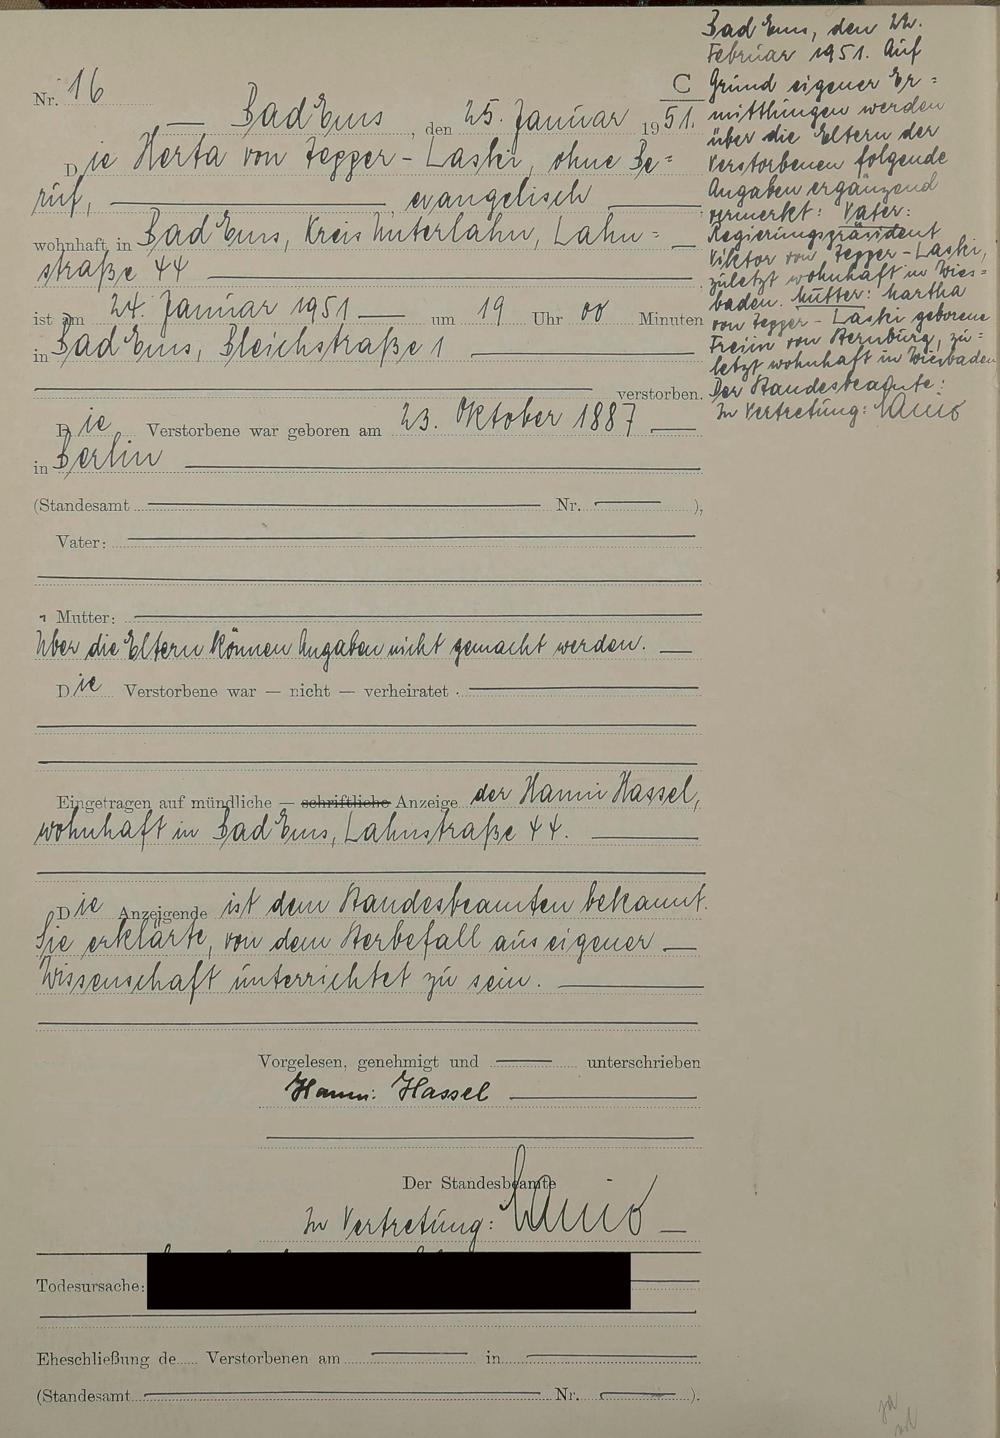 Nr. 16
C
— Bad Ems, den 25. Januar 1951.
Die Herta von Tepper-Laski, ohne Be=
ruf, evangelisch
wohnhaft in Bad Ems, Kreis Unterlahn, Lahn=
straße 44
ist am 24. Januar 1951 um 19 Uhr 00 Minuten
in Bad Ems, Bleichstraße 1
verstorben.
Die Verstorbene war geboren am 23. Oktober 1887
in Berlin
(Standesamt Nr. ),
Vater:
Mutter:
Über die Eltern können Angaben nicht gemacht werden.
Die Verstorbene war — nicht — verheiratet
Eingetragen auf mündliche — schriftliche Anzeige der Hanni Hassel,
wohnhaft in Bad Ems, Lahnstraße 44.
Die Anzeigende ist dem Standesbeamten bekannt.
Sie erklärte, von dem Sterbefall aus eigener
Wissenschaft unterrichtet zu sein.
Vorgelesen, genehmigt und unterschrieben
Hanni Hassel
Der Standesbeamte
In Vertretung:
Todesursache:
Eheschließung de Verstorbenen am in
(Standesamt Nr. ).
Bad Ems, den 22.
Februar 1951. Auf
Grund eigener Er=
mittlungen werden
über die Eltern der
Verstorbenen folgende
Angaben ergänzend
vermerkt: Vater:
Regierungspräsident
Viktor von Tepper-Laski,
zuletzt wohnhaft in Wies=
baden. Mutter: Martha
von Tepper-Laski geborene
Freiin von Sternburg, zu=
letzt wohnhaft in Wiesbaden
Der Standesbeamte:
In Vertretung: